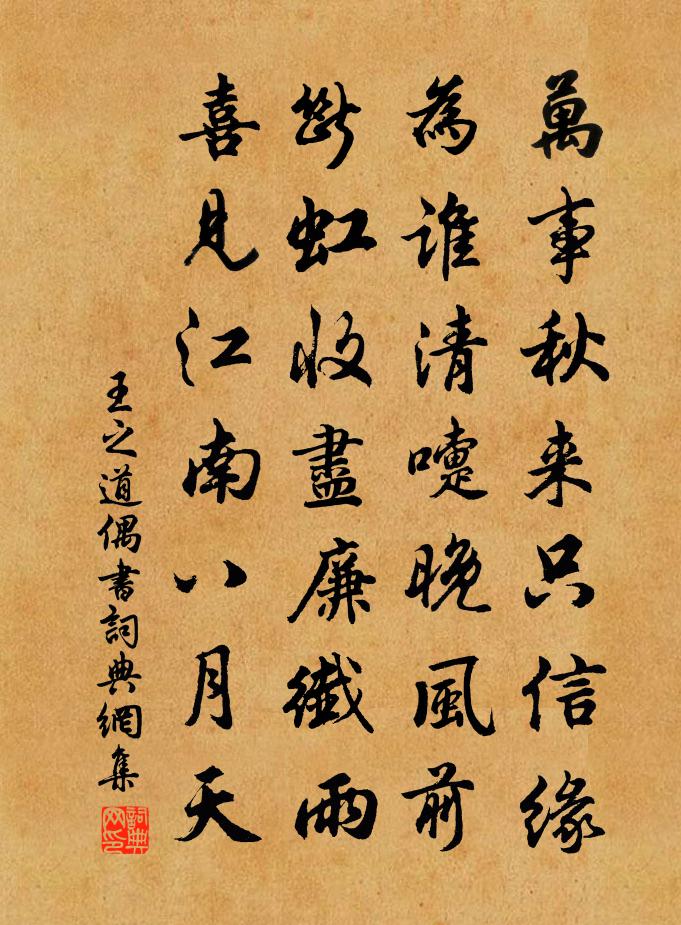 萬事秋来只信緣
為誰清嚏晚風前
斷虹收盡廉纖雨
喜見江南八月天
王之道偶書詞典網集
詞典网印